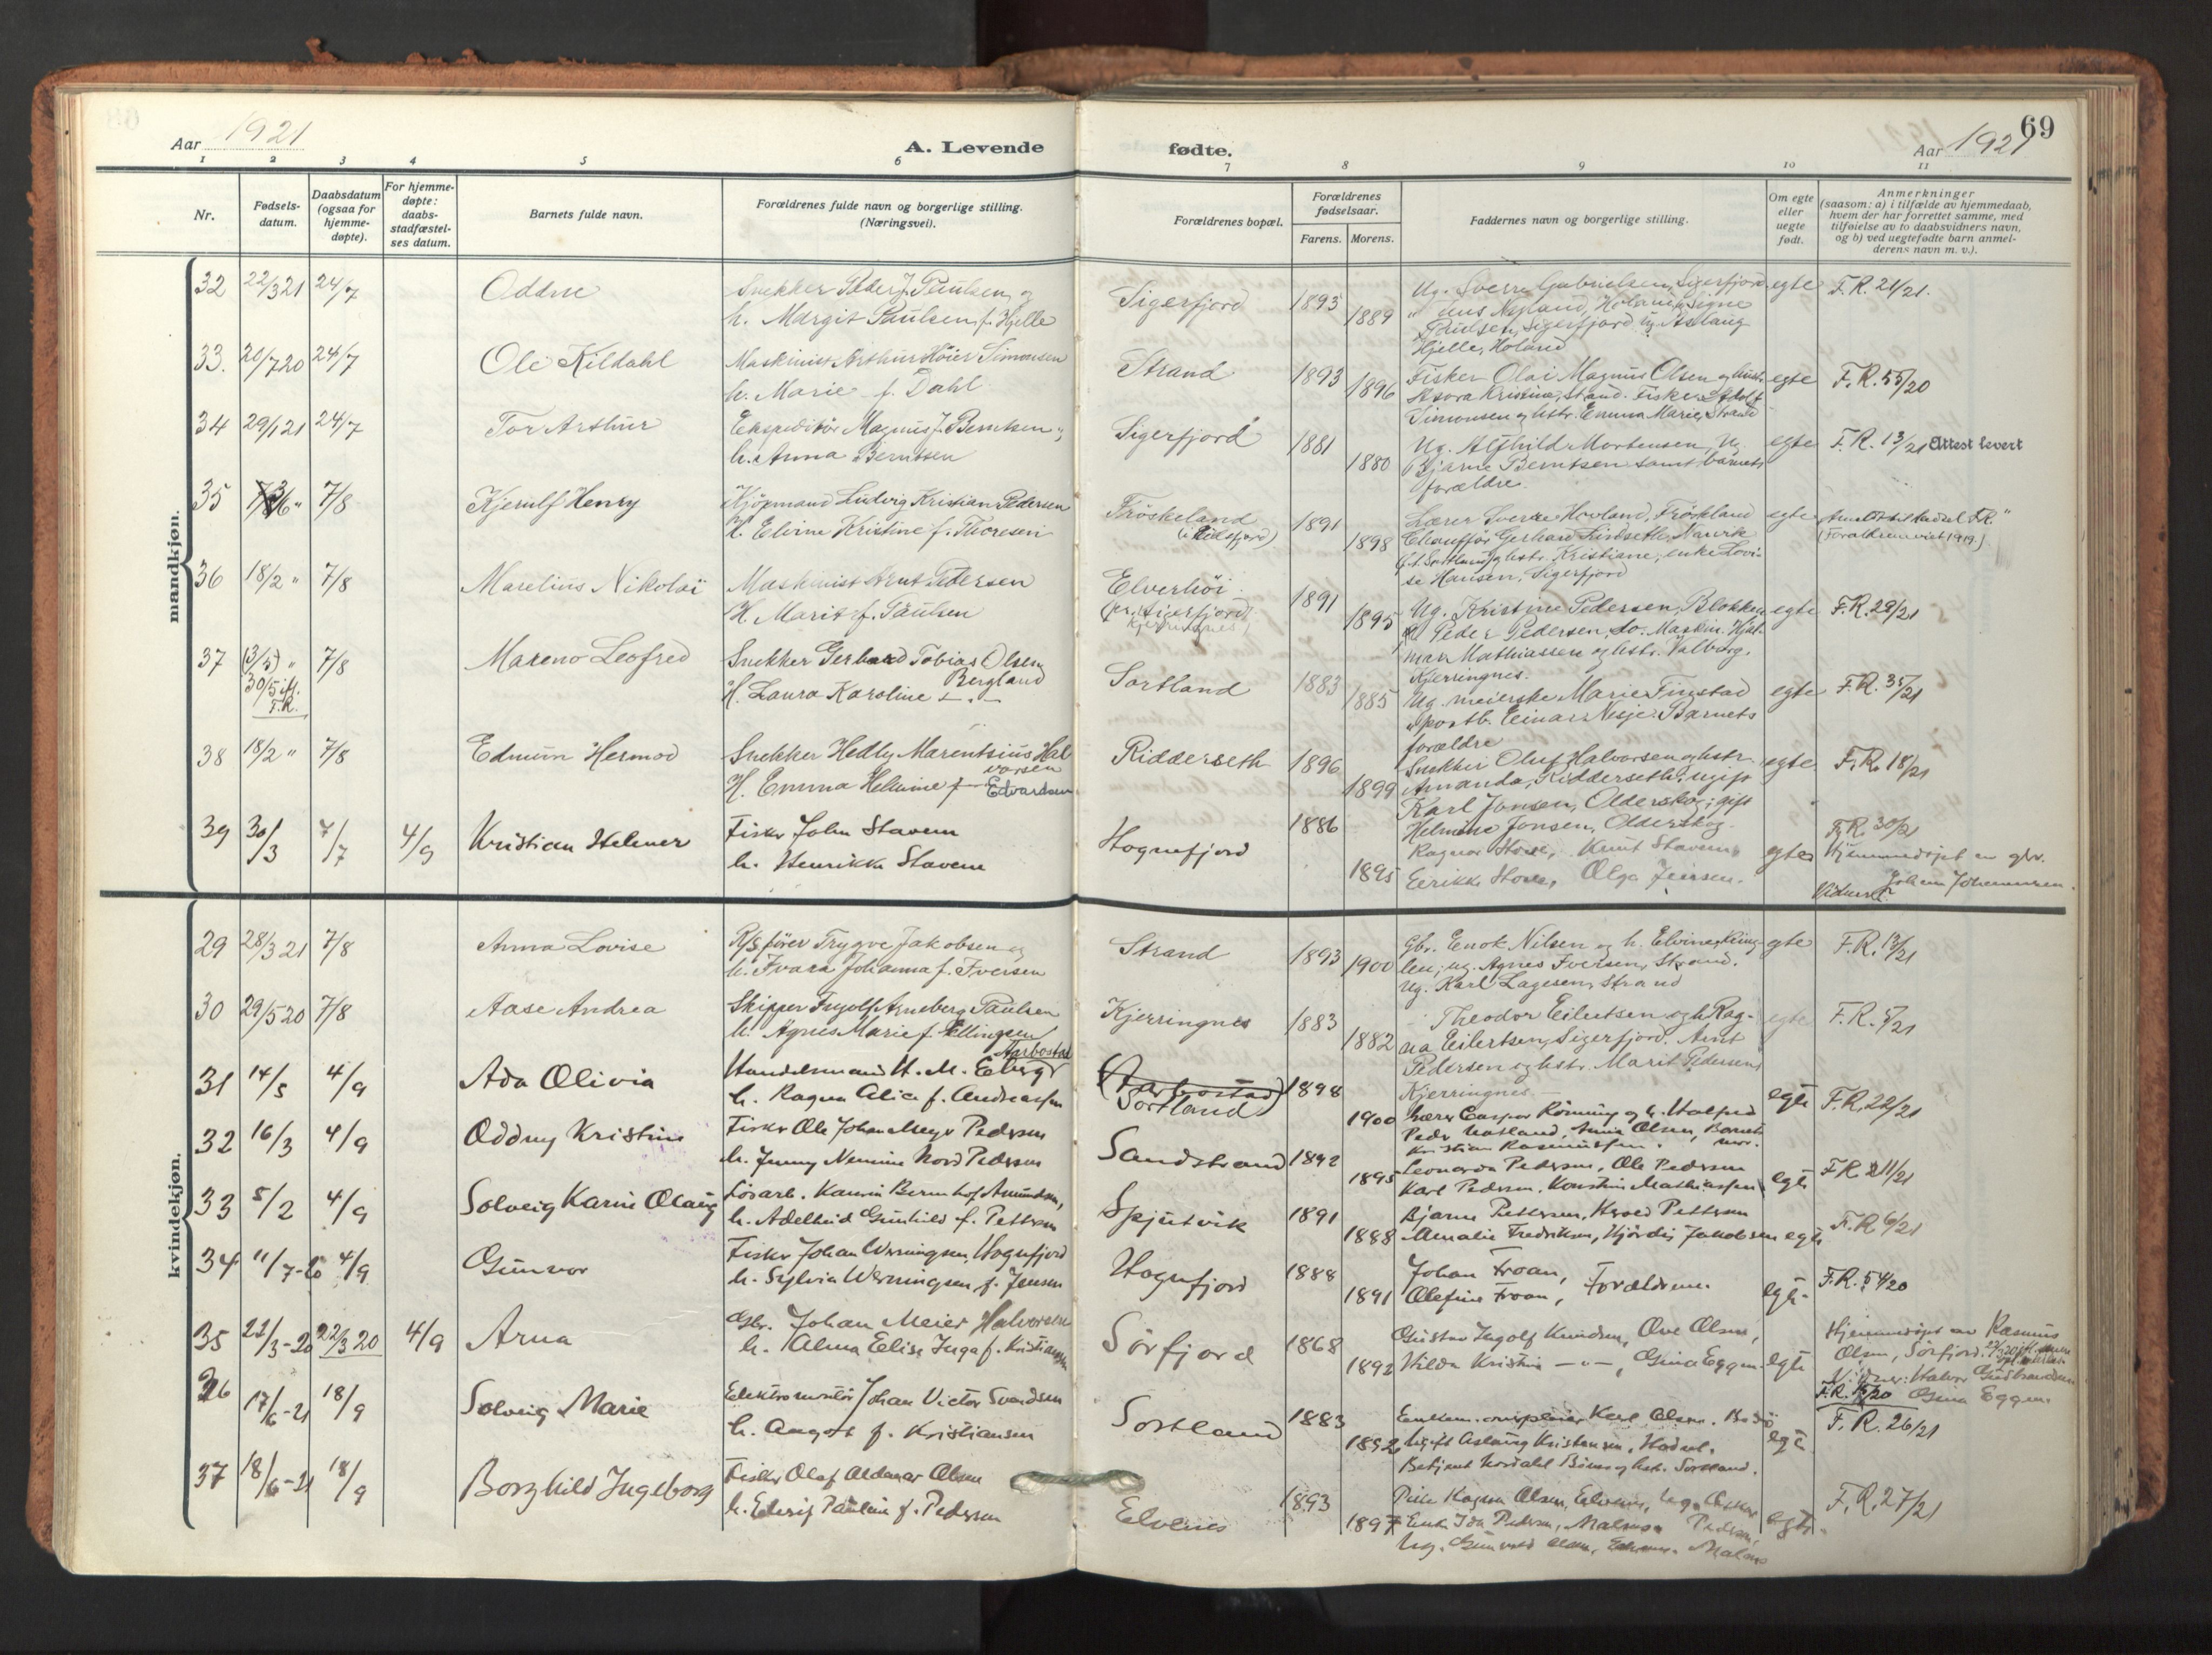 Aar 1921
A. Levende
fødte.
69
Aar 1921
1 2 3 4 5 6 7 8 9 10 11
Nr.
Fødsels-
datum.
Daabsdatum
(ogsaa for
hjemme-
døpte).
For hjemme-
døpte:
daabs-
stadfæstel-
ses datum.
Barnets fulde navn.
Forældrenes fulde navn og borgerlige stilling.
(Næringsvei).
Forældrenes bopæl.
Forældrenes
fødselsaar.
Farens. Morens.
Faddernes navn og borgerlige stilling.
Om egte
eller
uegte
født.
Anmerkninger
(saasom: a) i tilfælde av hjemmedaab,
hvem der har forrettet samme, med
tilføielse av to daabsvidners navn,
og b) ved uegtefødte barn anmel-
derens navn m. v.).
mandkjøn.
32 22/3 21 24/7 Oddne
Snekker Peder J. Paulsen og
h. Margit Paulsen f. Hjelle
Sigerfjord 1893 1889
Ug. Sverre Gabrielsen, Sigerfjord
Paulsen, Sigerfjord Ug. Aslaug
Hjelle, Holand
egte F.R. 21/21.
33. 20/7 20 24/7 Ole Kildahl
Maskinist Arthur Höier Simonsen
h. Marie f. Dahl
Strand 1893 1896
Fisker Olai Magnus Olsen og hustr.
Asora Kristine, Strand. Fisker Adolf
Simonsen og hstr. Emma Marie, Strand
egte F.R. 55/20
34 29/1 21 24/7 Tor Arthur
Ekspeditör Magnus J. Berntsen
h. Anna Berntsen
Sigerfjord 1881 1880
Ug. Alfhild Mortensen, Ug.
Bjarne Berntsen samt barnets
forældre.
egte F.R. 13/21 Attest levert
35 7/8 Kjerulf Henry
Kjöpmand Ludvig Kristian Pedersen
H. Elvine Kristine f. Thoresen
Fröskeland
(i Eidsfjord)
1891 1898
Lærer Sverre Hovland, Fröskland
Chaufför Gerhard Lindseth, Narvik
hstr. Kristiane, enke Lovi-
se Hansen, Sigerfjord
egte
(Forældrene viet 1919)
36 18/2 " 7/8 Marelius Nikolai
Maskinist Arnt Pedersen
H. Marit f. Paulsen
Elverhöi
(pr. Sigerfjord)
Kjerringnes
1891 1895
Ug. Kristine Pedersen, Blokken
Peder Pedersen, do. Maskin. Hjal-
mar Mathiassen og hstr. Valborg.
Kjerringnes.
egte F.R. 29/21
37 (3/5) " 7/8
30/5 ifl.
F.R.
Mareno Leofred
Snekker Gerhard Tobias Olsen
Bergland
H. Laura Karoline — " —
Sortland 1883 1885
Ug. meierske Marie Finstad
postb. Einar Nesje. Barnets
forældre
egte F.R. 35/21
38 18/2 " 7/8 Edmun Hermod
Snekker Hedly Marentsius Hal
vorsen
H. Emma Helmine f. Edvardsen
Ridderseth 1896 1899
Snekker Oluf Halvorsen og hstr.
Amanda, Ridderseth; ugift
Karl Jonsen, Olderskog; gift
Helmine Jonsen, Olderskog.
egte F.R. 18/21
39 30/3 7/7 4/9 Kristian Helmer
Fisker John Stavem
h. Henrikke Stavem
Hognfjord 1886 1895
Ragnar Hove, Knut Stavem,
Eerikke Hove, Olga Jensen.
egte F.R. 30/21
Hjemmedöpt av gbr.
Johan Johannesen.
kvindekjøn.
29 28/3 21 7/8 Anna Lovise
R/s förer Trygve Jakobsen og
h. Ivara Johanna f. Iversen
Strand 1893 1900
Gbr. Enok Nilsen og h. Elvine,
ug. Agnes Iversen, Strand.
Ug. Karl Lagesen, Strand
egte F.R. 19/21
30 29/5 20 7/8 Aase Andrea
Skipper Ingolf Arneberg Paulsen
h. Agnes Marie f. Ellingsen
Kjerringnes 1883 1882
Theodor Eilertsen og h. Rag-
na Eilertsen, Sigerfjord. Arnt
Pedersen og hstr. Marit Pedersen,
Kjerringnes. —
egte F.R. 5/21
31 14/5 4/9 Ada Olivia
Aarbostad
Handelsmand H. M. Eberg
h. Ragna Alice f. Andreassen
(Aarbostad)
Sortland
1898 1900
Lærer Caspar Rönning og h. Halfrid
Peder Hatland, Anna Olsen, Barnets
Kristian Rasmussen. mor.
egte F.R. 22/21
32 16/3 4/9 Oddny Kristine
Fisker Ole Johan Meyer Pedersen
h. Jenny Nemine Nord Pedersen
Sandstrand 1892 1895
Leonarda Pedersen, Ole Pedersen
Karl Pedersen, Konstanse Mathiassen
egte F.R. 211/21
33 5/2 4/9 Solveig Karine Olaug
Lösarb. Kaurin Bernhof Amundsen,
h. Adelheid Gunhild f. Pettersen
Spjutvik 1891 1888
Bjarne Pettersen, Herod Pettersen
Amalie Fredriksen, Hjördis Jakobsen
egte F.R. 6/21
34 11/7-20 4/9 Gunvor
Fisker Johan Werningsen, Hognfjord
h. Sylvia Werningsen f. Jensen
Hognfjord 1888 1891
Johan Troan,
Olefine Troan, Forældrene.
egte F.R. 54/20
35 22/3-20 22/3 20 4/9 Arna
Gbr. Johan Meier Halvorsen
h. Alma Elise Inga f. Kristiansen
Sörfjord 1868 1892
Gustav Ingolf Knudsen, Ove Olsen,
Hilda Kristine — " —, Gina Eggen.
egte
Hjemmedöpt av Rasmus
Olsen, Sörfjord.
Vidner: Halvor Gudbrandsen
Gina Eggen.
36 17/6-21 18/9 Solveig Marie
Elektromontör Johan Victor Svendsen
h. Aagot f. Kristiansen
Sortland 1883 1892
Karl Olsen. Bodö
Ugift Aslaug Kristensen, Hadsel.
Betjent Nordahl Bönes og hstr. Sortland.
egte F.R. 26/21
37 18/6-21 18/9 Borghild Ingeborg
Fisker Olaf Aldemar Olsen
h. Edvig Pauline f. Pedersen
Elvenes 1893 1897
Pike Ragna Olsen, Elvenes, Ug. Oskar
Enke Ida Pedersen, Malnes. Pedersen,
Ug. Gunvald Olsen, Elvenes. Malnes
egte. F.R. 27/21